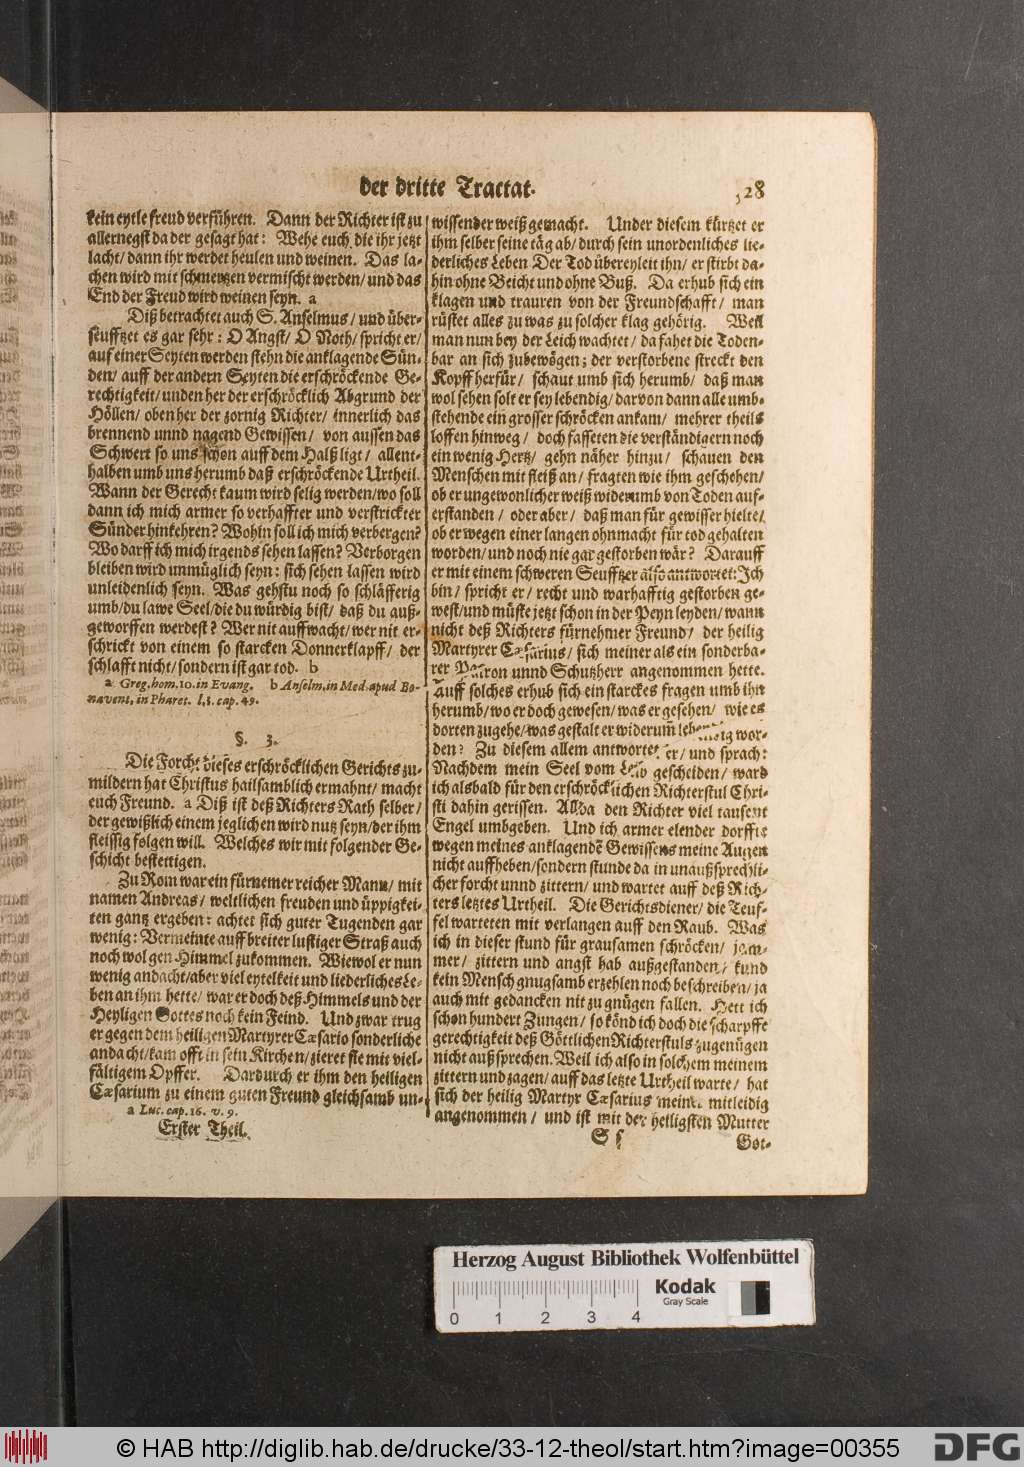 der dritte Tractat.
28
kein eytle freud verführen. Dann der Richter ist zu
allernegst da der gesagt hat: Wehe euch, die ihr jetzt
lacht/ dann ihr werdet heulen und weinen. Das la-
chen wird mit schmertzen vermischt werden/ und das
End der Freud wird weinen seyn. a
Diß betrachtet auch S. Anselmus/ und über-
seufftzet es gar sehr: O Angst/ O Noth/ spricht er/
auf einer Seyten werden stehn die anklagende Sün-
den/ auff der andern Seyten die erschröckende Ge-
rechtigkeit/ unden her der erschröcklich Abgrund der
Höllen/ oben her der zornig Richter/ innerlich das
brennend unnd nagend Gewissen/ von aussen das
Schwert so uns schon auff dem Halß ligt/ allent-
halben umb uns herumb daß erschröckende Urtheil.
Wann der Gerecht kaum wird selig werden/ wo soll
dann ich mich armer so verhaffter und verstrickter
Sünder hinkehren? Wohin soll ich mich verbergen?
Wo darff ich mich irgends sehen lassen? Verborgen
bleiben wird unmüglich seyn: sich sehen lassen wird
unleidenlich seyn. Was gehstu noch so schläfferig
umb/ du lawe Seel/ die du würdig bist/ daß du auß-
geworffen werdest? Wer nit auffwacht/ wer nit er-
schrickt von einem so starcken Donnerklapff/ der
schlafft nicht/ sondern ist gar tod. b
a Greg. hom. 10. in Evang. b Anselm. in Med. apud Bo-
navent, in Pharet. l.1. cap. 49.
§. 3.
Die Forcht dieses erschröcklichen Gerichts zu-
mildern hat Christus hailsamblich ermahnt/ macht
euch Freund. a Diß ist deß Richters Rath selber/
der gewißlich einem jeglichen wird nutz seyn/ der ihm
fleissig folgen will. Welches wir mit folgender Ge-
schicht bestettigen.
Zu Rom war ein fürnemer reicher Mann/ mit
namen Andreas/ weltlichen freuden und üppigkei-
ten gantz ergeben: achtet sich guter Tugenden gar
wenig: Vermeinte auff breiter lustiger Straß auch
noch wol gen Himmel zukommen. Wiewol er nun
wenig andacht/ aber viel eytelkeit und liederliches Le-
ben an ihm hette/ war er doch deß Himmels und der
Heyligen Gottes noch kein Feind. Und zwar trug
er gegen dem heiligen Martyrer Cæsario sonderliche
andacht/ kam offt in sein Kirchen/ zieret sie mit viel-
fältigem Opffer. Dardurch er ihm den heiligen
Cæsarium zu einem guten Freund gleichsamb un-
a Luc. cap. 16. v. 9.
Erster Theil.
wissender weiß gemacht. Under diesem kürtzet er
ihm selber seine täg ab/ durch sein unordenliches lie-
derliches Leben Der Tod übereyleit ihn/ er stirbt da-
hin ohne Beicht und ohne Buß. Da erhub sich ein
klagen und trauren von der Freundschafft/ man
rüstet alles zu was zu solcher klag gehörig. Weil
man nun bey der Leich wachtet/ da fahet die Toden-
bar an sich zubewögen; der verstorbene streckt den
Kopff herfür/ schaut umb sich herumb/ daß man
wol sehen solt er sey lebendig/ darvon dann alle umb-
stehende ein grosser schröcken ankam/ mehrer theils
loffen hinweg/ doch fasseten die verständigern noch
ein wenig Hertz/ gehn näher hinzu/ schauen den
Menschen mit fleiß an/ fragten wie ihm geschehen/
ob er ungewonlicher weiß widerumb von Toden auf-
erstanden/ oder aber/ daß man für gewisser hielte/
ob er wegen einer langen ohnmacht für tod gehalten
worden/ und noch nie gar gestorben wär? Darauff
er mit einem schweren Seufftzer also antwortet: Ich
bin/ spricht er/ recht und warhafftig gestorben ge-
west/ und müste jetzt schon in der Peyn leyden/ wann
nicht deß Richters fürnehmer Freund/ der heilig
Martyrer Cæsarius/ sich meiner als ein sonderba-
rer Patron unnd Schutzherr angenommen hette.
Auff solches erhub sich ein starckes fragen umb ihn
herumb/ wo er doch gewesen/ was er gesehen/ wie es
dorten zugehe/ was gestalt er widerum̃ lebendig wor-
den? Zu diesem allem antwortet er/ und sprach:
Nachdem mein Seel vom Leib gescheiden/ ward
ich alsbald für den erschröcklichen Richterstul Chri-
sti dahin gerissen. Allda den Richter viel tausent
Engel umbgeben. Und ich armer elender dorffte
wegen meines anklagendẽ Gewissens meine Augen
nicht auffheben/ sondern stunde da in unaußsprechli-
cher forcht unnd zittern/ und wartet auff deß Rich-
ters letztes Urtheil. Die Gerichtsdiener/ die Teuf-
fel warteten mit verlangen auff den Raub. Was
ich in dieser stund für grausamen schröcken/ jam-
mer/ zittern und angst hab außgestanden/ kund
kein Mensch gnugsamb erzehlen noch beschreiben/ ja
auch mit gedancken nit zu gnügen fallen. Hett ich
schon hundert Zungen/ so könd ich doch die scharpffe
gerechtigkeit deß Göttlichen Richterstuls zugenügen
nicht außsprechen. Weil ich also in solchem meinem
zittern und zagen/ auff das letzte Urtheil warte/ hat
sich der heilig Martyr Cæsarius meiner mitleidig
angenommen/ und ist mit der heiligsten Mutter
S s
Got-
Herzog August Bibliothek Wolfenbüttel
0 1 2 3 4
Kodak
Gray Scale
© HAB http://diglib.hab.de/drucke/33-12-theol/start.htm?image=00355
DFG